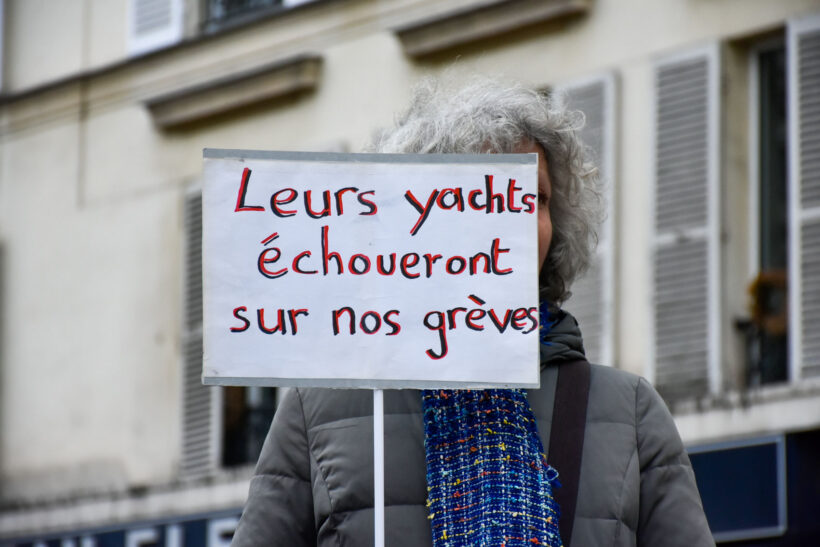 Leurs yachts
échoueront
sur nos grèves